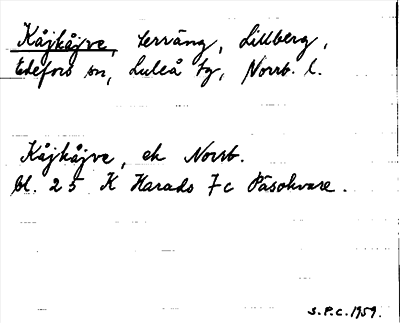 Kåjkåjve, terräng, Lillberg,
Edefors sn, Luleå tg, Norrb. l.
Kåjkåjve, ek Norrb.
bl. 25 K Harads 7c Päsokvare.
S.P.C. 1959.